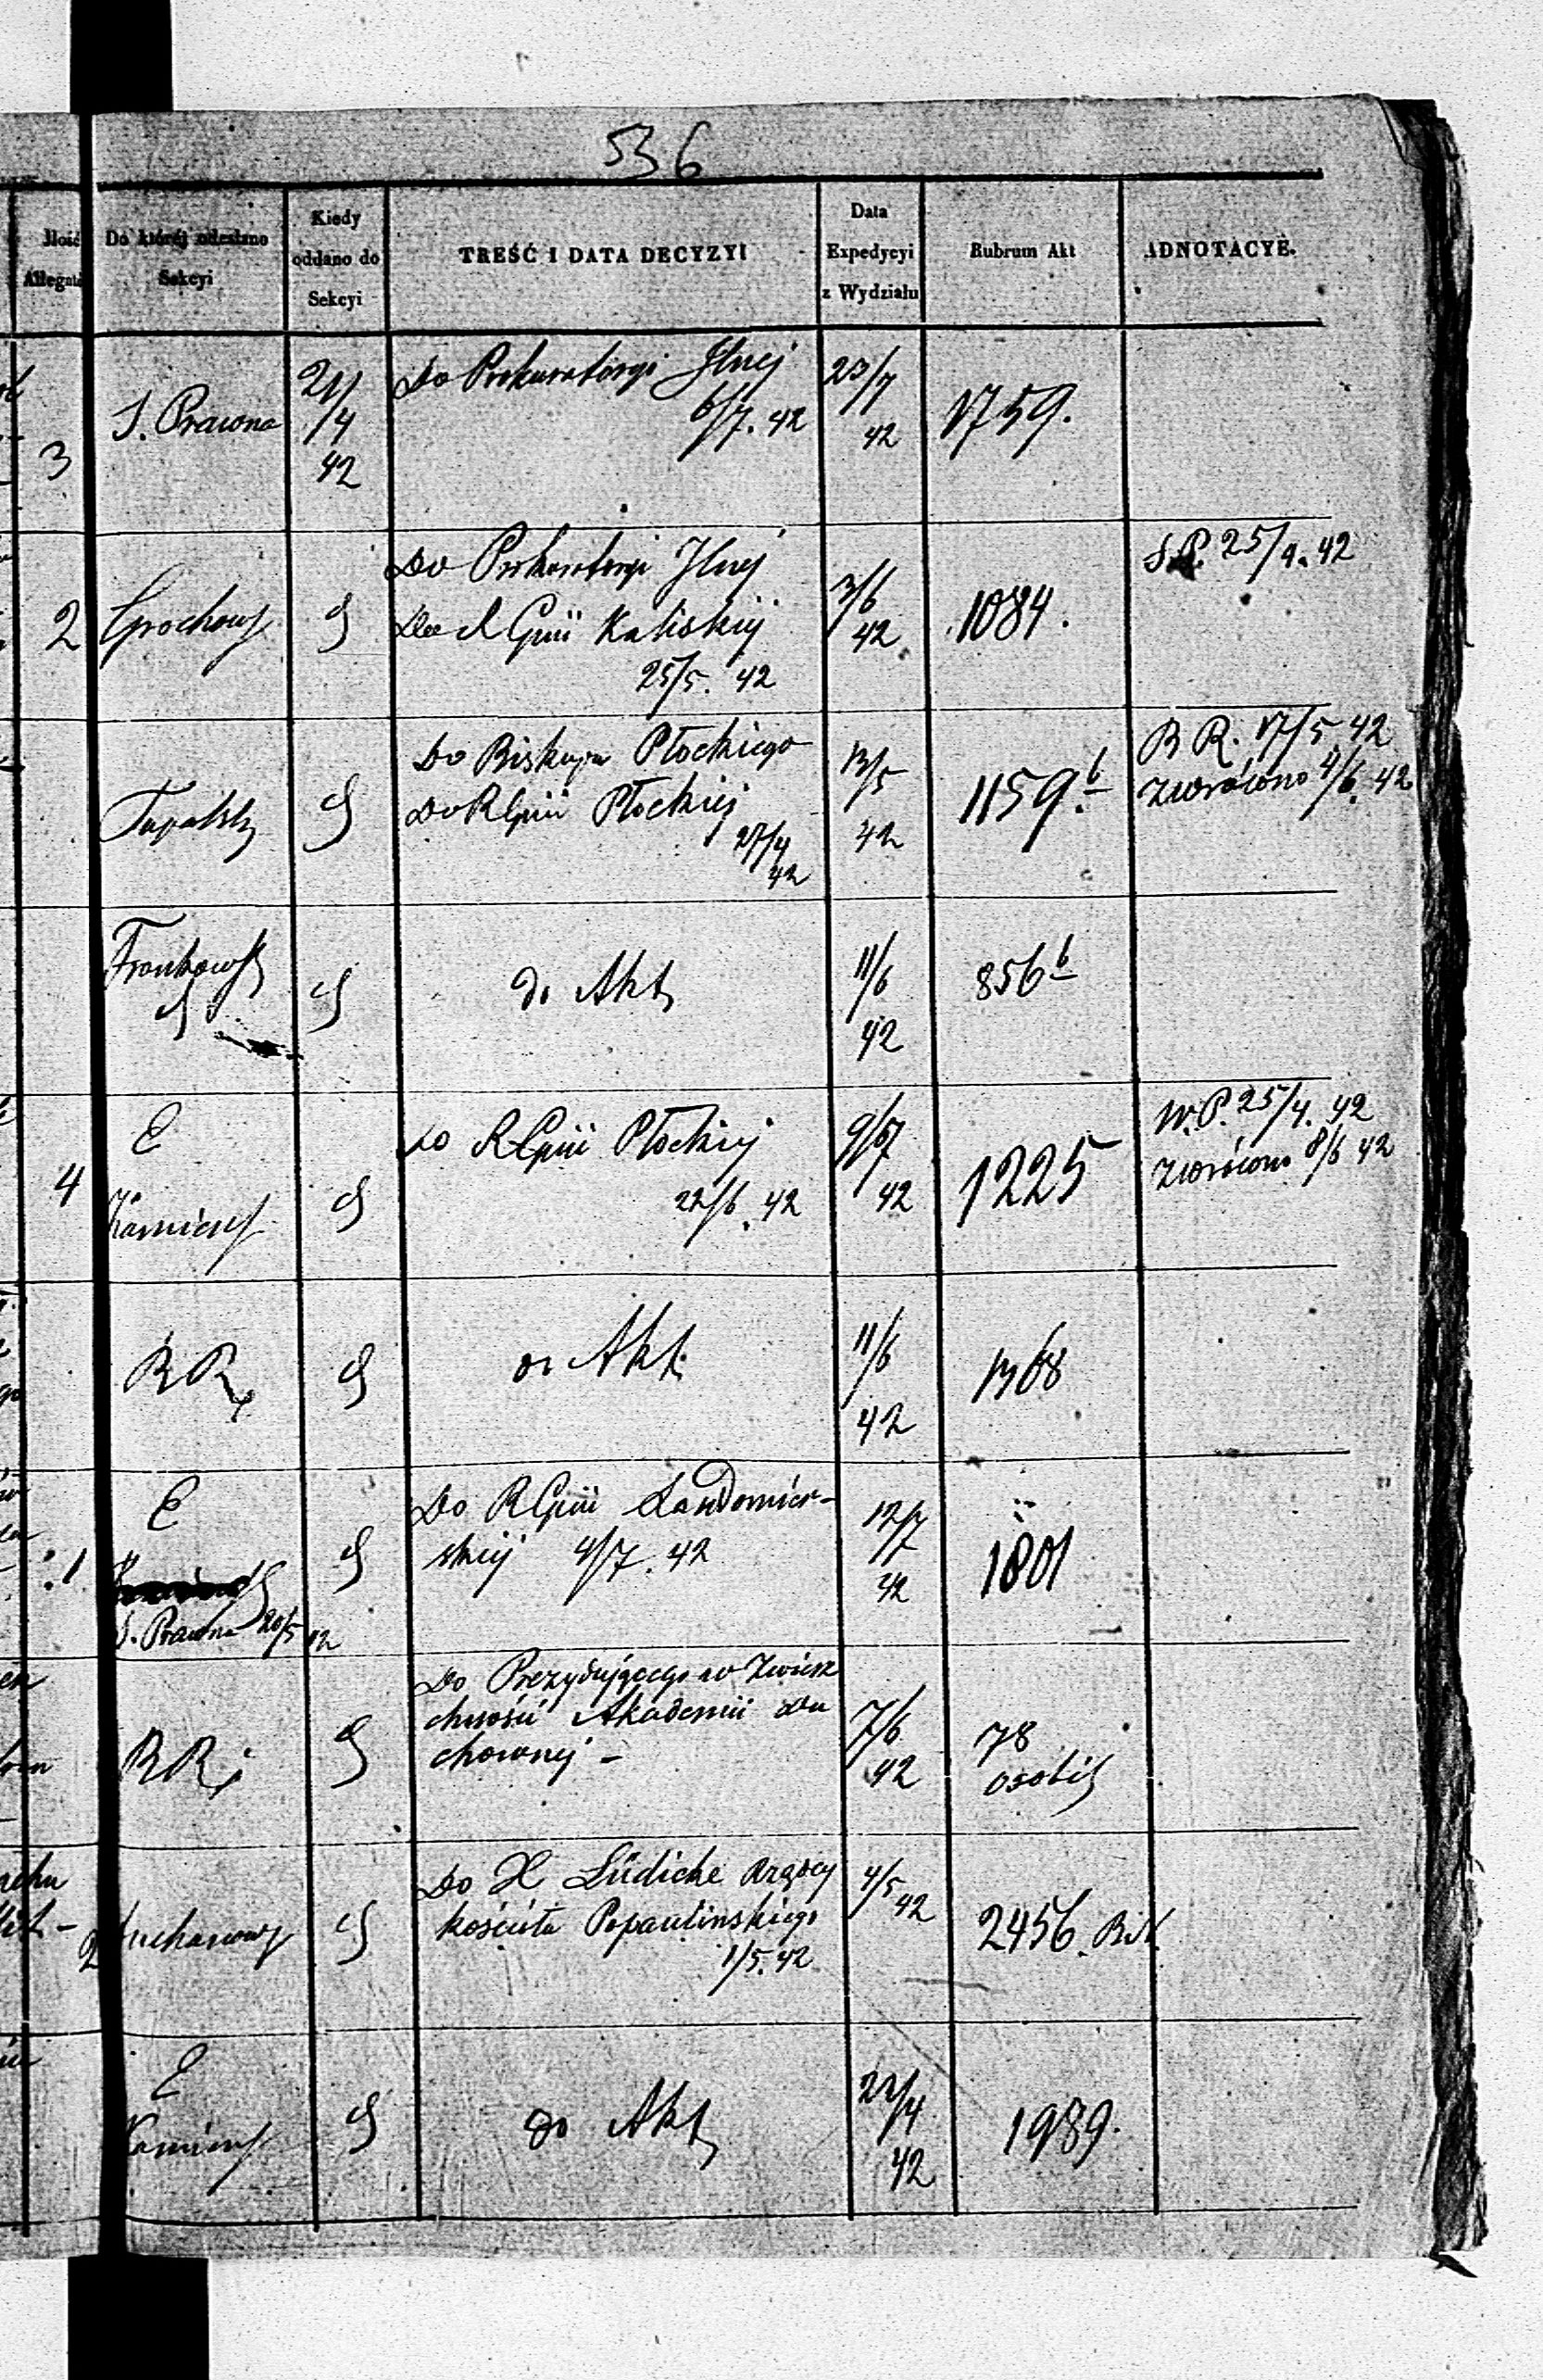 536
Ilość Allegató
Do któréj odesłano Sekcyi
Kiedy oddano do Sekcyi
TREŚĆ I DATA DECYZYI
Data Expedycyi z Wydziału
Rubrum Akt
ADNOTACYE.
3
S. Prawna
21/4 42
Do Prokuratoryi Jlnej
6/7. 42
23/7 42
1759.
2
Grochows
Do Prokuratoryi Jlnej
Do R Gnii Kaliskiej
25/5. 42
3/6 42
1084.
S.P. 25/4. 42
Do Biskupa Płockiego
Do R Gnii Płockiej
27/4 42
13/5 42
1159 b
B R. 17/5 42
zwrócono 4/6. 42
Frankows
do Akt
11/6 42
856 b
4
E
Kamiens
do R Gnii Płockiej
22/6. 42
42
1225
W.P. 25/4. 42
zwrócono 8/6 42
B R
do Akt
11/6 42
1368
:1
E
S. Prawna 20/5 42
Do R Gnii Sandomier-
skiej 4/7. 42
12/7 42
1801
B R
Do Prezydującego w Zwierz
chności Akademii Du
chownej -
7/6 42
78
osobis
2
Do X Lüdicke Rządcy
kościoła Popaulinskiego
1/5. 42
4/5 42
2456.
E
Kamiens
do Akt
22/4 42
1989.